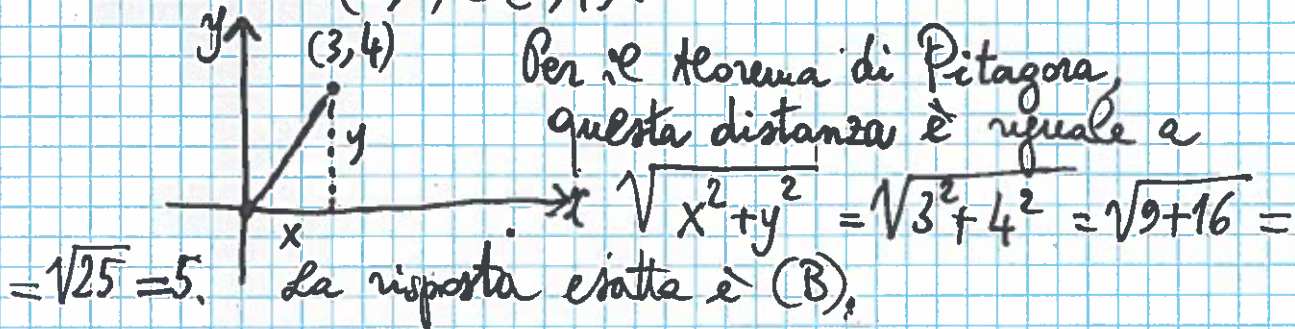 y
(3,4)
Per il teorema di Pitagora,
questa distanza è uguale a
y
x √x²+y² = √3²+4² = √9+16 =
x
= √25 = 5. La risposta esatta è (B).